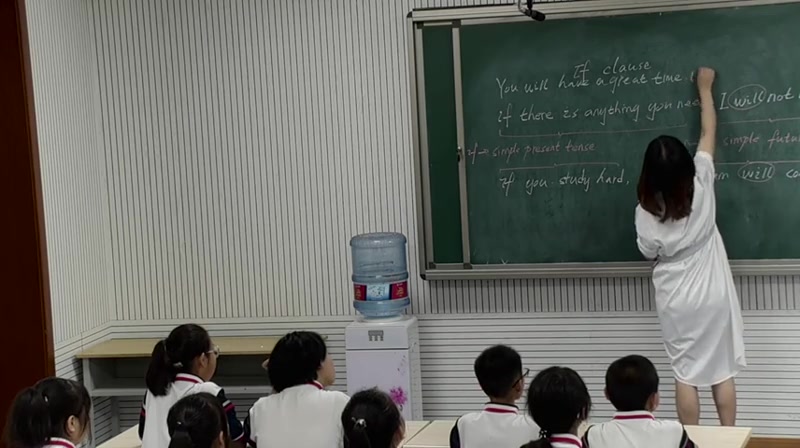 If clause
You will have a great time
if there is anything you need I will not
if → simple present tense simple futu
if you study hard, will